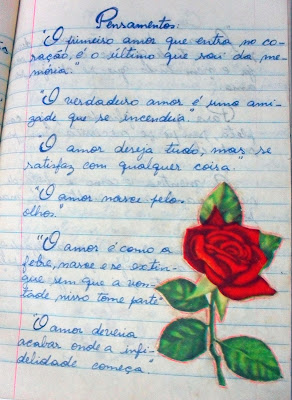 Pensamentos:
"O primeiro amor que entra no co-
ração, é o último que sai da me-
mória."
"O verdadeiro amor é uma ami-
zade que se incendeia."
"O amor deseja tudo, mas se
satisfaz com qualquer coisa."
"O amor nasce pelos
olhos."
"O amor é como a
febre, nasce e se extin-
gue sem que a von-
tade nisso tome parte"
"O amor deveria
acabar onde a infi-
delidade começa"